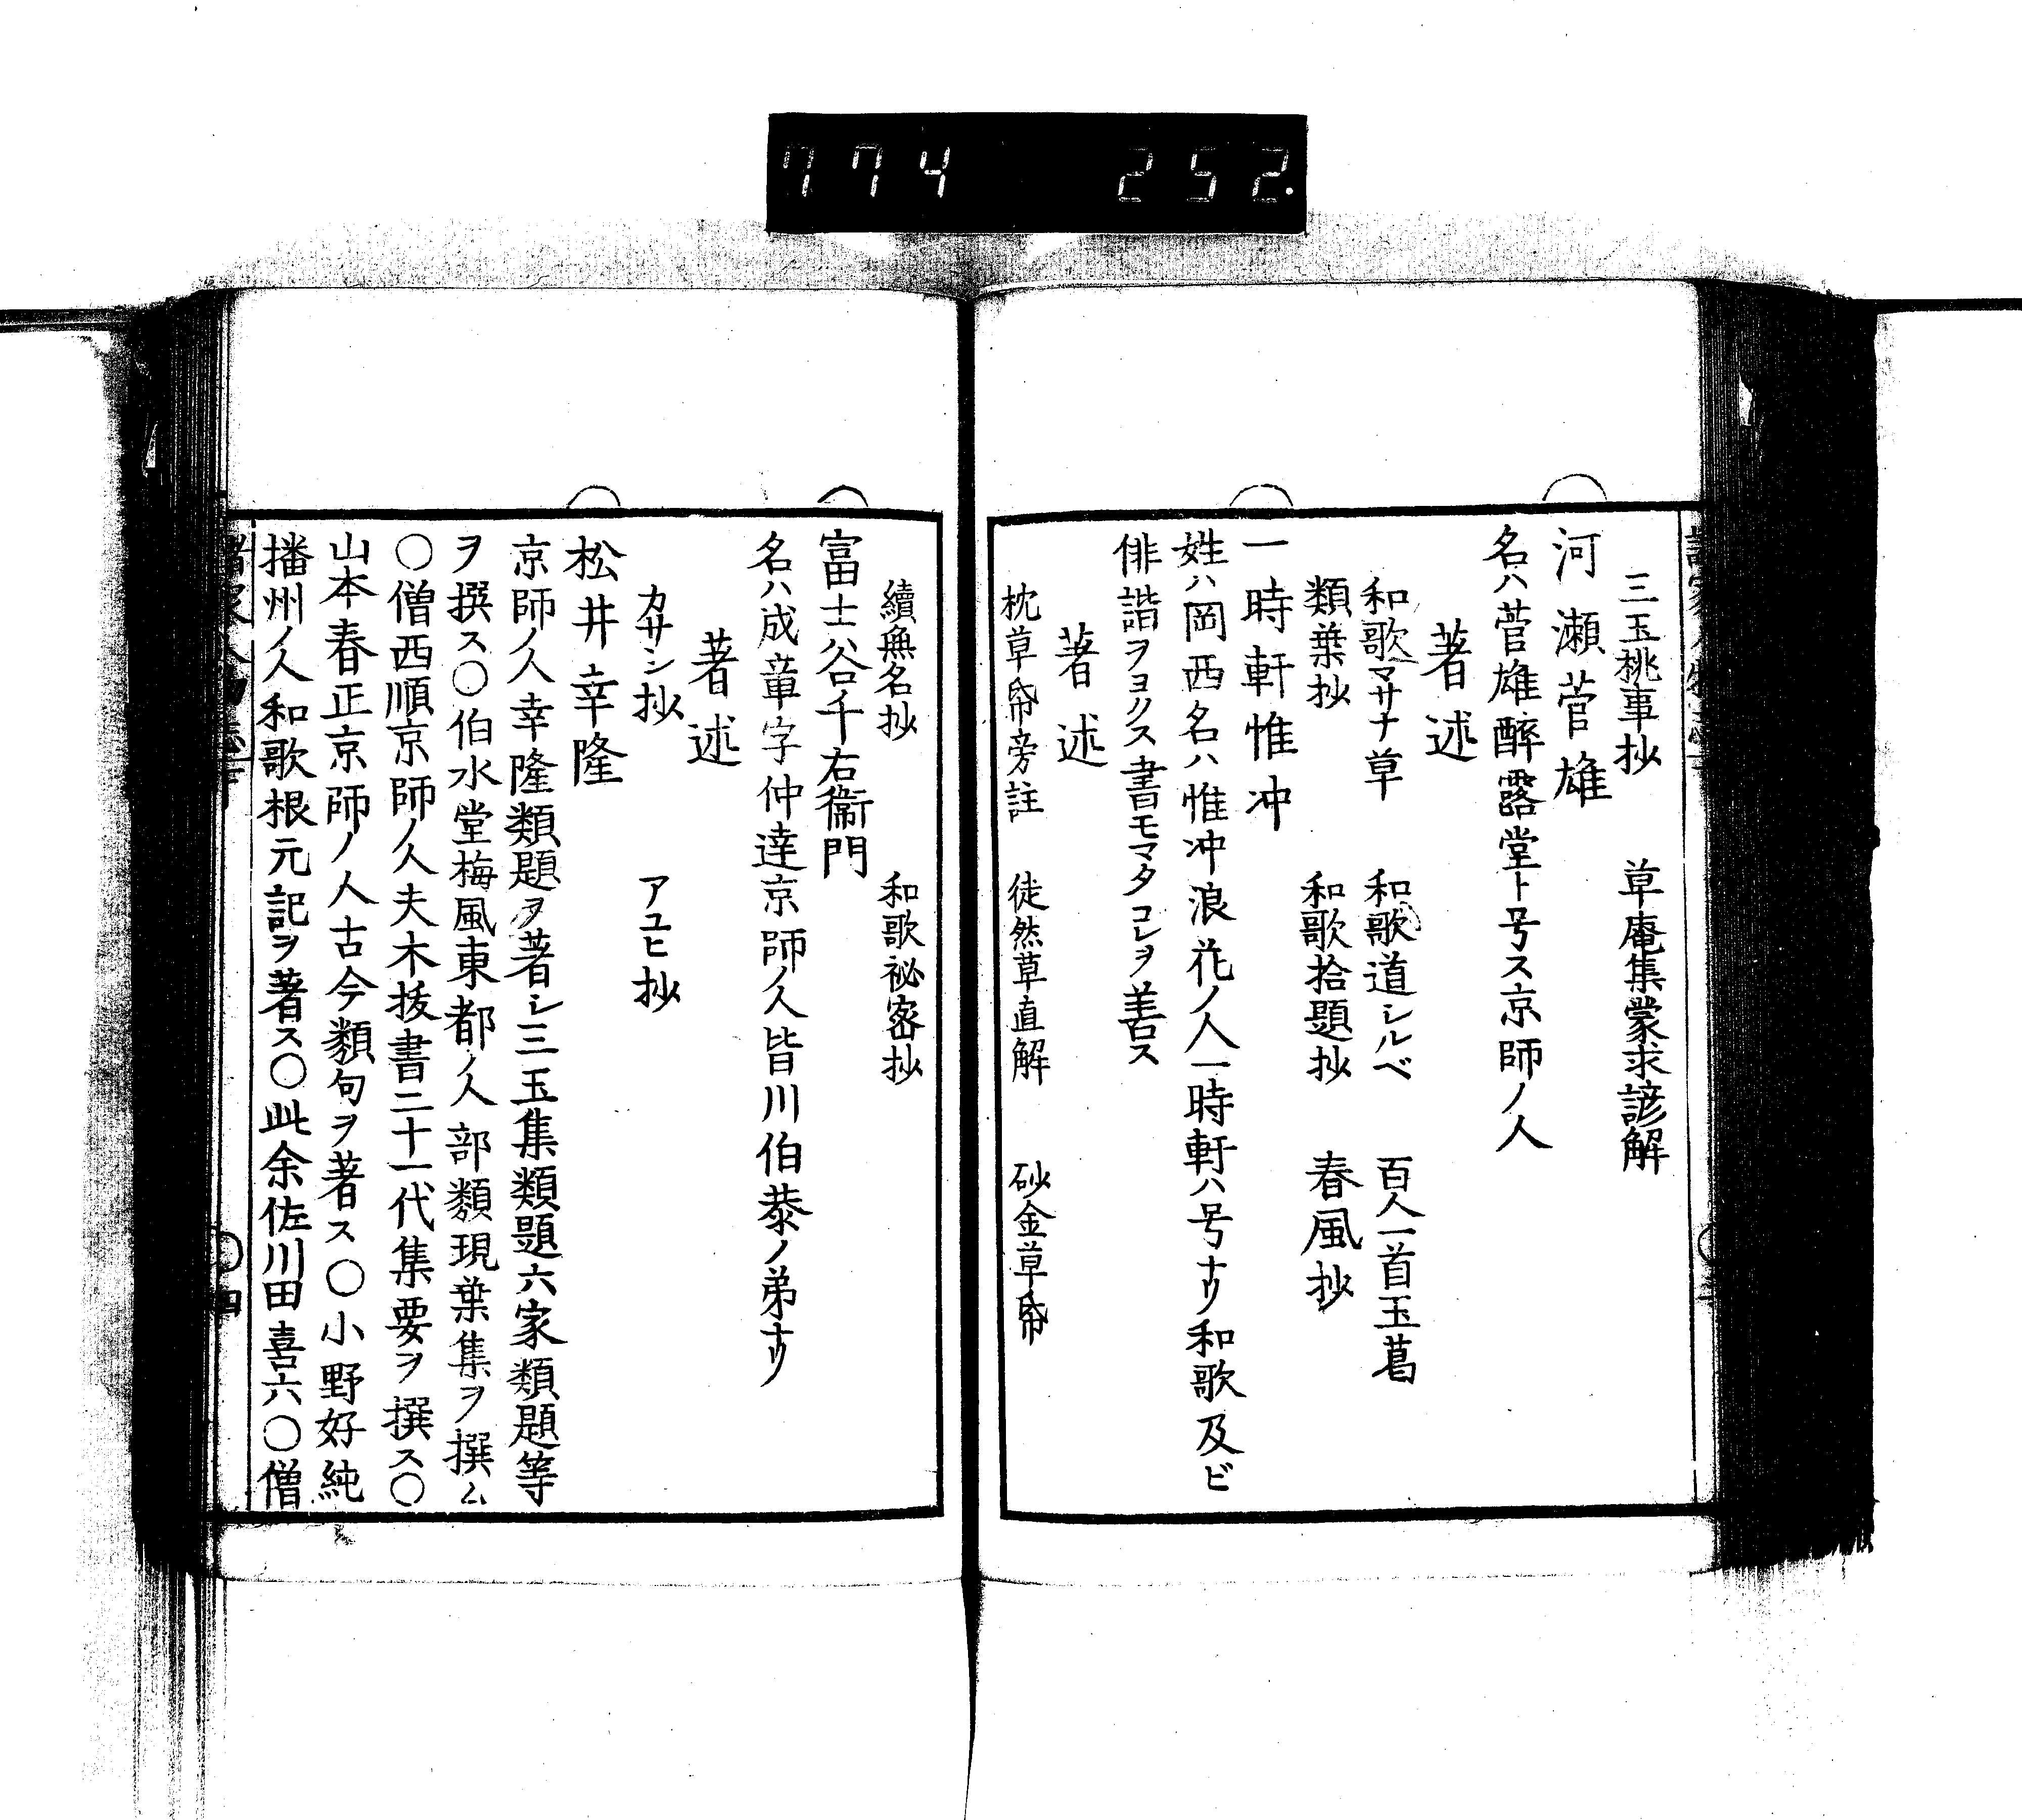 774 252.
三玉桃事抄 草庵集蒙求諺解
河瀬菅雄
名ハ菅雄醉露堂ト号ス京師ノ人
著述
和歌マサナ草 和歌道シルベ 百人一首玉葛
類葉抄 和歌拾題抄 春風抄
一時軒惟冲
姓ハ岡西名ハ惟冲浪花ノ人一時軒ハ号ナリ和歌及ビ
俳諧ヲヨクス書モマタコレヲ善ス
著述
枕草帋旁註 徒然草直解 砂金草帋
續無名抄 和歌祕密抄
富士谷千右衞門
名ハ成章字仲達京師ノ人皆川伯恭ノ弟ナリ
著述
カサシ抄 アユヒ抄
松井幸隆
京師ノ人幸隆類題ヲ著シ三玉集類題六家類題等
ヲ撰ス〇伯水堂梅風東都ノ人部類現葉集ヲ撰ム
〇僧西順京師ノ人夫木拔書二十一代集要ヲ撰ス〇
山本春正京師ノ人古今類句ヲ著ス〇小野好純
播州ノ人和歌根元記ヲ著ス〇此余佐川田喜六〇僧